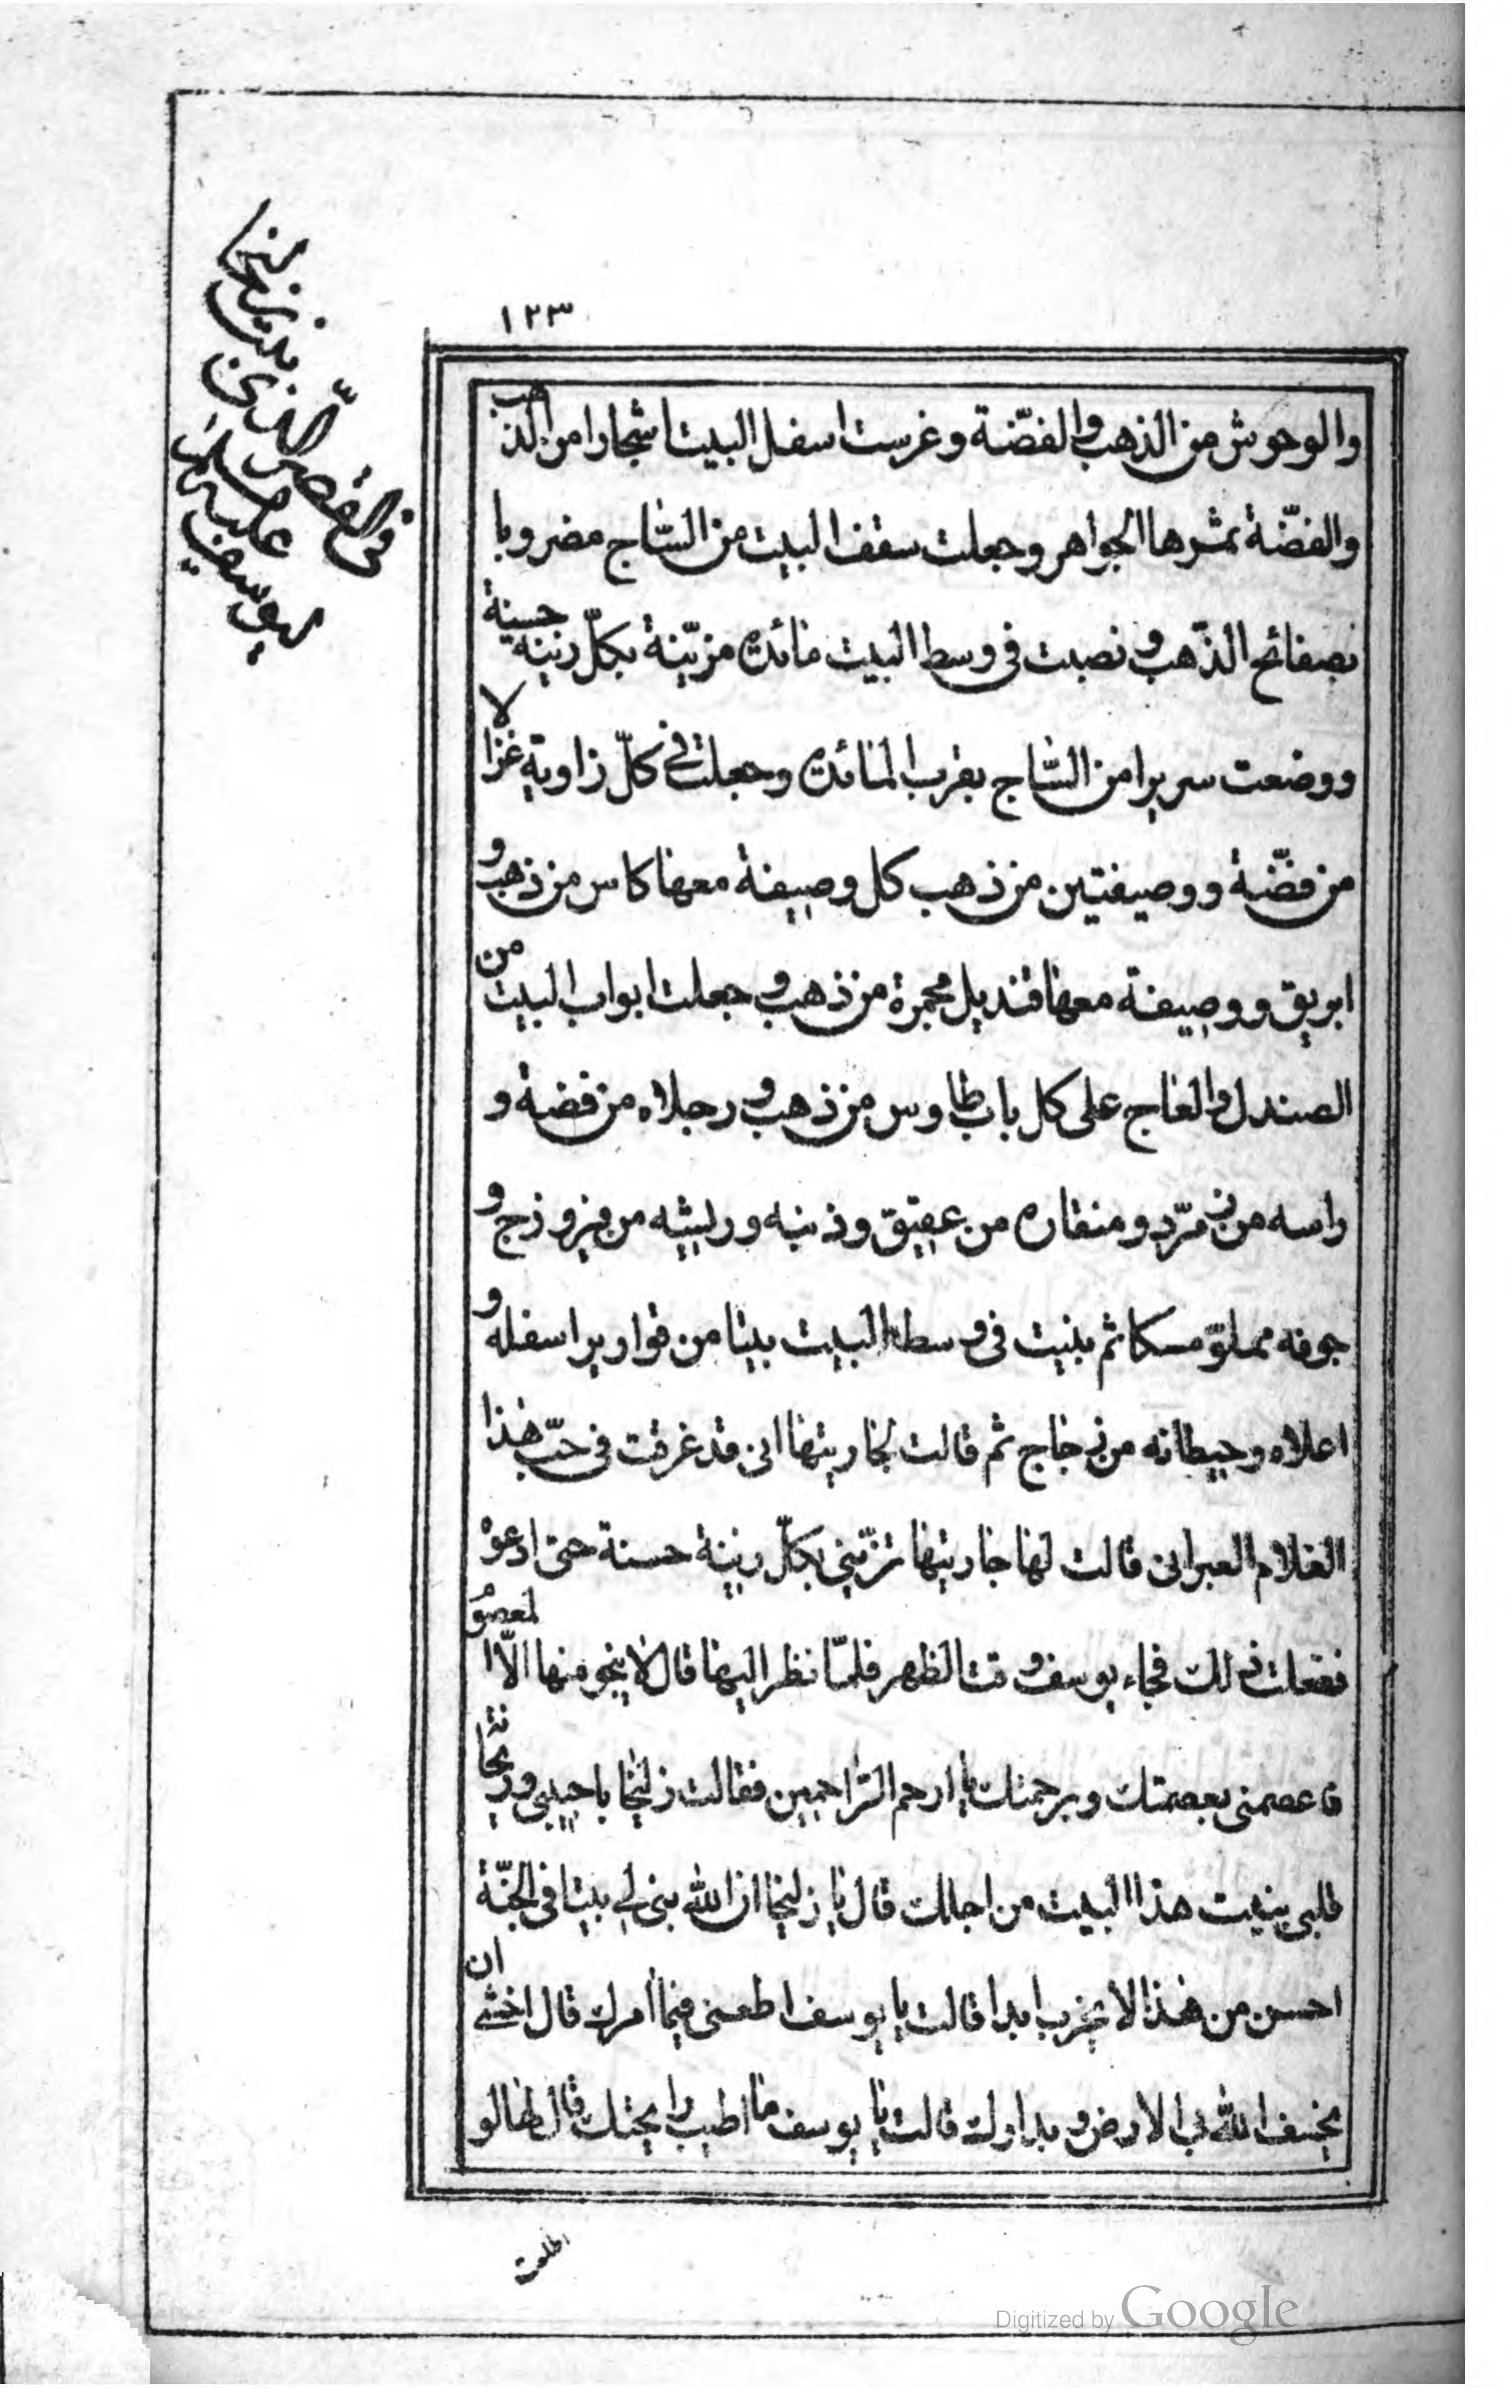 ١٢٣
والوحوش من الذهب والفضّة وغرست اسفل البيت اشجارا من الذهب
والفضّة ثمرها الجواهر وجعلت سقف البيت من السّاج مضروبا
بصفائح الذّهب ونصبت فى وسط البيت مائدة مزيّنة بكلّ زينة حسنة
ووضعت سريرا من السّاج بقرب المائدة وجعلت فى كلّ زاوية غزالا
من فضّة ووصيفتين من ذهب كل وصيفة معها كاس من ذهب و
ابريق ووصيفة معها قنديل مجمرة من ذهب وجعلت ابواب البيت من
الصندل والعاج على كل باب طاوس من ذهب ورجلاه من فضة و
راسه من زمّرد ومنقاره من عقيق وذنبه وريشه من فيروزج و
جوفه مملوّ مسكا ثم بنيت فى وسط البيت بيتا من قوارير اسفله و
اعلاه وحيطانه من زجاج ثم قالت لجاريتها انى قد غرقت فى حبّ هذا
الغلام العبرانى قالت لها جاريتها تزيّنى بكلّ زينة حسنة حتى ادعوه
ففعلت ذلك فجاء يوسف وقت الظهر فلمّا نظر اليها قال لا ينجو منها الّا المعصوم
فاعصمنى بعصمتك وبرحمتك يا ارحم الرّاحمين فقالت زليخا يا حبيبى وريحانة
قلبى بنيت هذا البيت من اجلك قال يا زليخا ان الله بنى لى بيتا فى الجنّة
احسن من هذا لا يخرب ابدا قالت يا يوسف اطعنى فيما أمرك قال اخشى ان
يخسف الله بى الارض وبدارك قالت يا يوسف ما اطيب رايحتك قال لها لو
اطلعت
فى القصر الّذى بنت زليخا
ليوسف عليه السلم